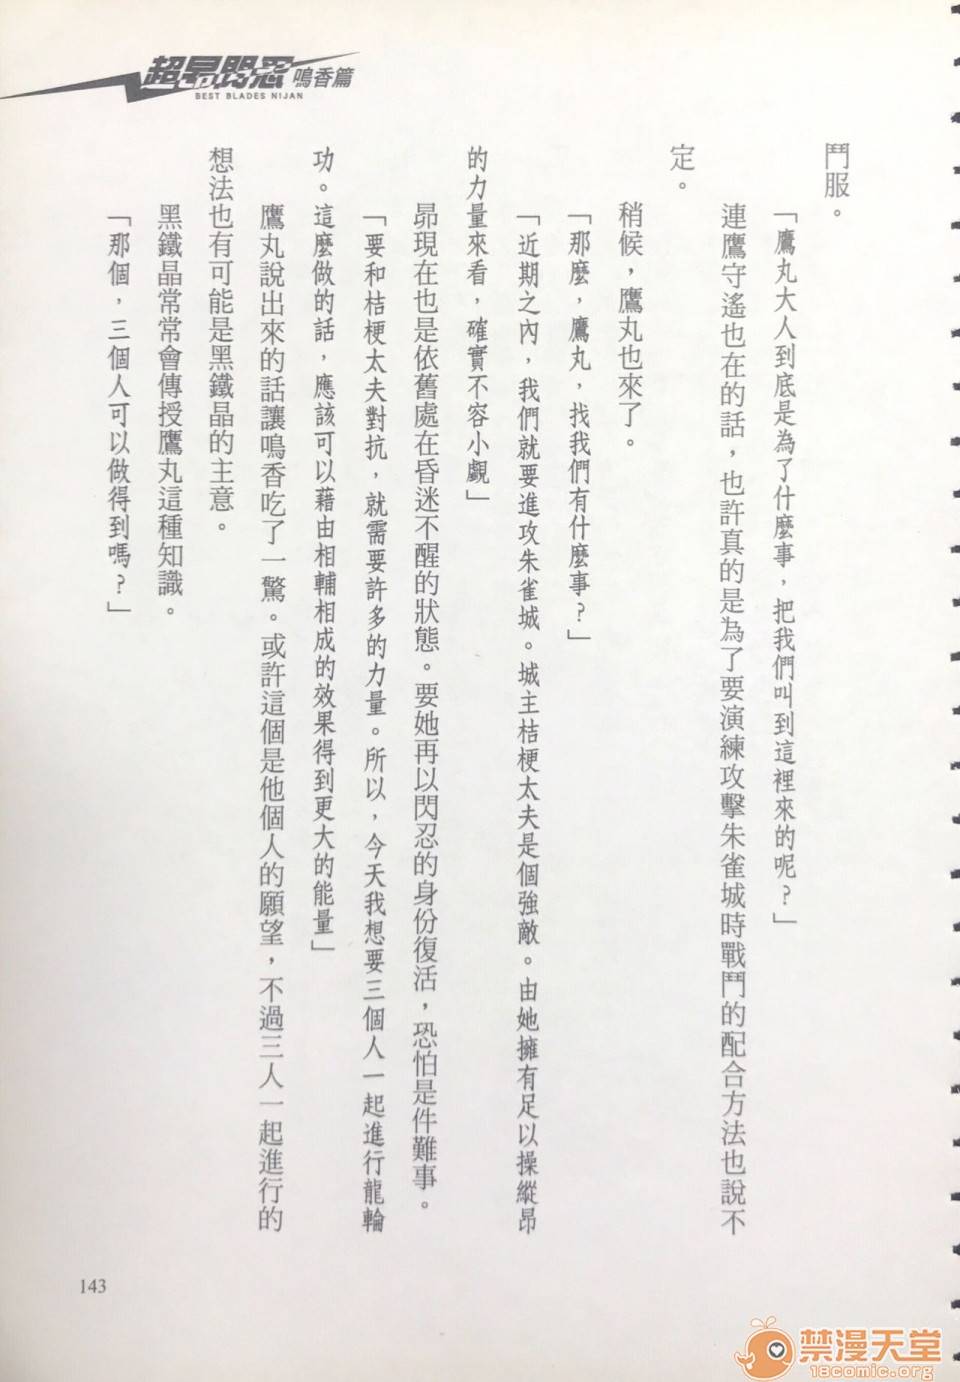 超昂閃忍 鳴香篇
BEST BLADES NIJAN
鬥服。
「鷹丸大人到底是為了什麼事，把我們叫到這裡來的呢？」
連鷹守遙也在的話，也許真的是為了要演練攻擊朱雀城時戰鬥的配合方法也說不
定。
稍候，鷹丸也來了。
「那麼，鷹丸，找我們有什麼事？」
「近期之內，我們就要進攻朱雀城。城主桔梗太夫是個強敵。由她擁有足以操縱昂
的力量來看，確實不容小覷」
昴現在也是依舊處在昏迷不醒的狀態。要她再以閃忍的身份復活，恐怕是件難事。
「要和桔梗太夫對抗，就需要許多的力量。所以，今天我想要三個人一起進行龍輪
功。這麼做的話，應該可以藉由相輔相成的效果得到更大的能量」
鷹丸說出來的話讓鳴香吃了一驚。或許這個是他個人的願望，不過三人一起進行的
想法也有可能是黑鐵晶的主意。
黑鐵晶常常會傳授鷹丸這種知識。
「那個，三個人可以做得到嗎？」
143
禁漫天堂
18comic.org